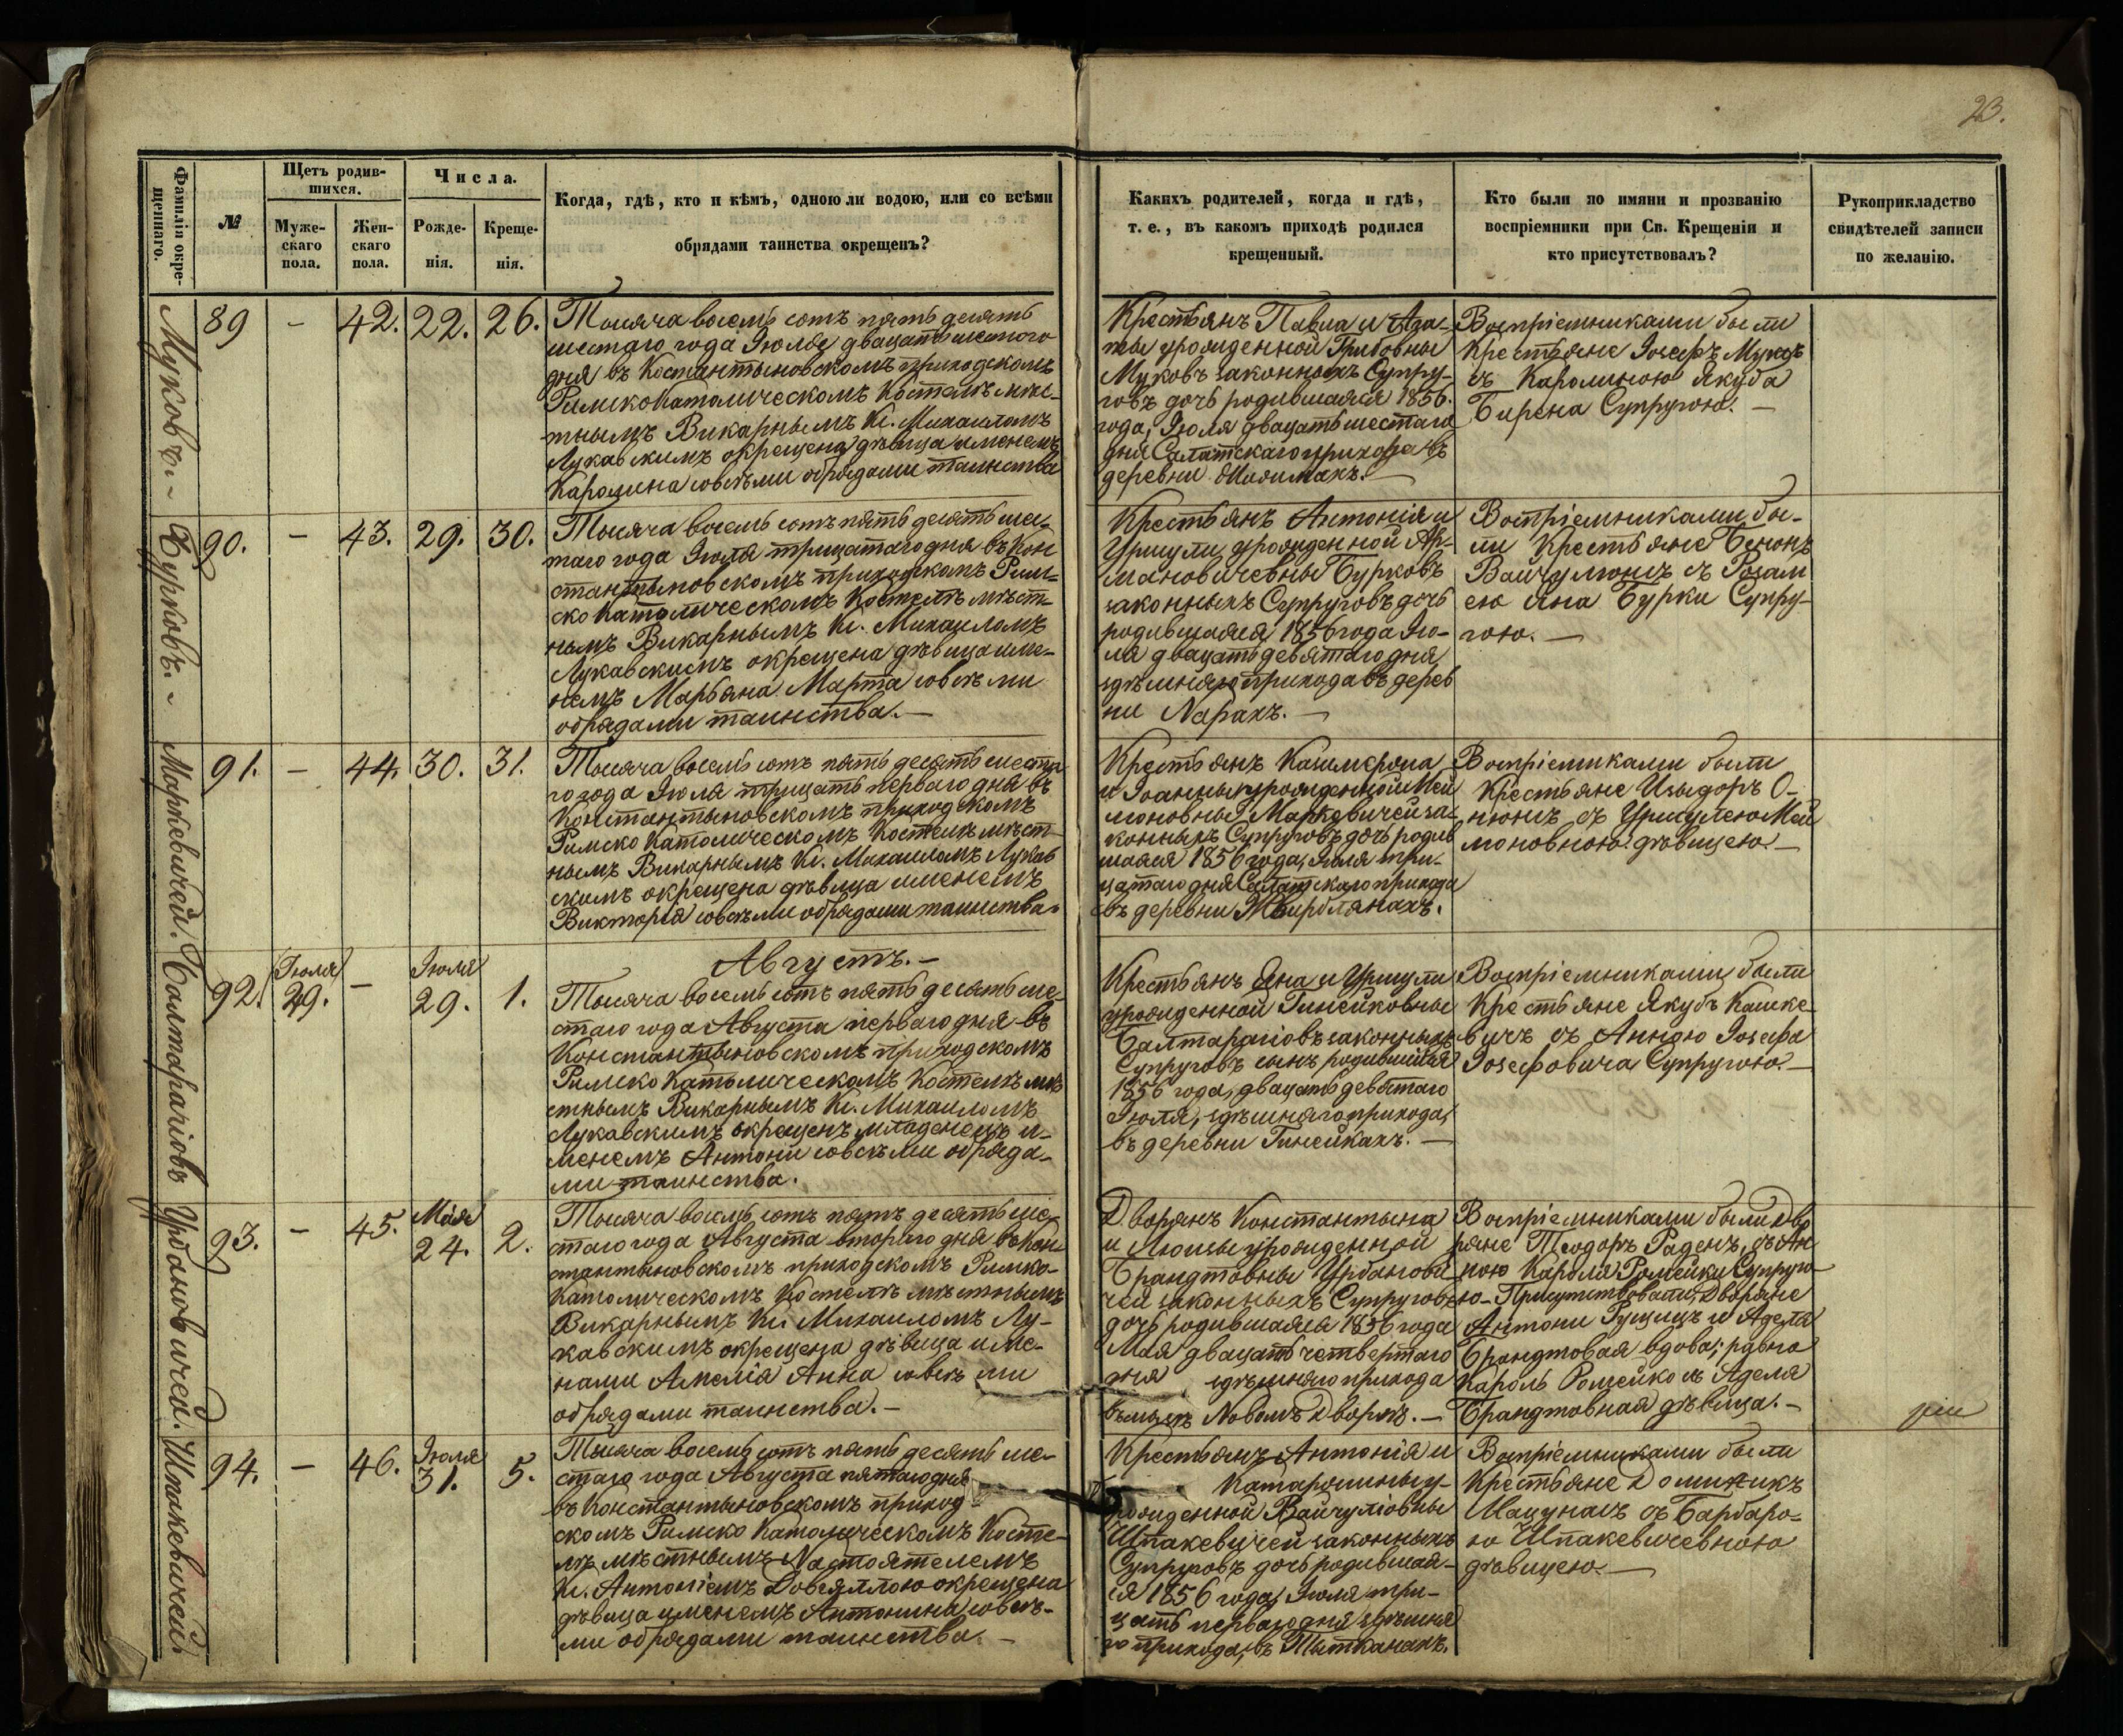 23.
Фамиліи окре-
щеннаго.
№
Щетъ родив-
шихся.
Муже-
скаго
пола.
Жен-
скаго
пола.
Числа.
Рожде-
нія.
Креще-
нія.
Когда, гдѣ, кто и кѣмъ, одною ли водою, или со всѣми
обрядами таинства окрещенъ?
Какихъ родителей, когда и гдѣ,
т. е., въ какомъ приходѣ родился
крещенный.
Кто были по имяни и прозванію
воспріемники при Св. Крещеніи и
кто присутствовалъ?
Рукоприкладство
свидѣтелей записи
по желанію.
Муковъ. -
89 - 42. 22. 26.
Тысяча восемь сотъ пять десять
шестаго года Іюля двацать шестого
дня въ Константыновскомъ приходскомъ
Римско Католическомъ Костелѣ мѣс-
тнымъ Викарнымъ Кс. Михаиломъ
Лукавскимъ окрещена дѣвица именемъ
Каролина со всѣми обрядами таинства
Крестьянъ Павла и Ага-
ты урожденной Грибовны
Муковъ законныхъ Супру-
говъ дочь родившаяся 1856.
года, Іюля двацать шестаго
дня Салатскаго прихода въ
деревни
Воспріемниками были
Крестьяне Іосефъ Мукъ
съ Каролиною Якуба
Бирена Супругою. -
Бурковъ. -
90. - 43. 29. 30.
Тысяча восемь сотъ пять десять шес-
таго года Іюля трицатаго дня въ Кон
стантыновскомъ приходскомъ Рим-
ско Католическомъ Костелѣ мѣст-
нымъ Викарнымъ Кс. Михаиломъ
Лукавскимъ окрещена дѣвица име-
немъ Марьяна Марта со всѣ ми
обрядами таинства. -
Крестьянъ Антонія и
Уршули урожденной Ар-
мановичевны Бурковъ
законныхъ Супруговъ дочь
родившаяся 1856 года Ію-
ля двацать девятаго дня,
здѣшняго прихода въ дерев
ни Nарахъ. -
Воспріемниками бы-
ли Крестьяне Бенонъ
Вайчулюнъ съ Розали
ею Яна Бурки Супру-
гою. -
Маркевичей.
91. - 44. 30. 31.
Тысяча восемь сотъ пять десять шеста
го года Іюля трицать перваго дня въ
Константыновскомъ приходскомъ
Римско Католическомъ Костелѣ мѣст-
нымъ Викарнымъ Кс. Михаиломъ Лукав
скимъ окрещена дѣвица именемъ
Викторія со всѣми обрядами таинства.
Крестьянъ Кашмероиа
и Іоанны урожденной Мей
лоновны Маркевичей за-
конныхъ Супруговъ дочь родив
шаяся 1856 года, Іюля три-
цатаго дня Салатскаго прихода
въ деревни
Воспріемниками были
Крестьяне Изыдоръ О-
нюнъ съ Уршулею Мей
лоновною дѣвицею. -
Августъ. -
Балтарагіовъ
92. Іюля 29. - Іюля 29. 1.
Тысяча восемь сотъ пять десять ше-
стаго года Августа перваго дня въ
Константыновскомъ приходскомъ
Римско Католическомъ Костелѣ мѣ
стнымъ Викарнымъ Кс. Михаиломъ
Лукавскимъ окрещенъ младенецъ и-
менемъ Антони со всѣми обряда-
ми таинства.
Крестьянъ Яна и Уршули
урожденной Гинейковны
Балтарагіовъ законныхъ
Супруговъ сынъ родившійся
1856 года, двацать девятаго
Іюля, здѣшняго прихода,
въ деревни Гинейкахъ. -
Воспріемниками были
Крестьяне Якубъ Кашке-
вичъ съ Анною Іосефа
Іозефовича Супругою. -
Урбановичей.
93. - 45. Мая 24. 2.
Тысяча восемь сотъ пять десять ше-
стаго года Августа втораго дня въ Кон-
стантыновскомъ приходскомъ Римско-
Католическомъ Костелѣ мѣстнымъ
Викарнымъ Кс. Михаиломъ Лу-
кавскимъ окрещена дѣвица име-
нами Амелія Анна со всѣ ми
обрядами таинства. -
Дворянъ Константына
и Люизы урожденной
Брандтовны Урбанови-
чей законныхъ Супруговъ
дочь родившаяся 1856 года
Мая двацать четвертаго
дня здѣшняго прихода
Новомъ Дворѣ. -
Воспріемниками были Дво
ряне Теодоръ Раденъ, съ Ан
ною Кароля Ромейки Супруго
ю - Присутствовали, Дворяне
Антони Рущицъ и Аделя
Брандтовая вдова; равно
Кароль Ромейко съ Аделя
Брандтовная дѣвица. -
Шпакевичей
94. - 46. Іюля 31. 5.
Тысяча восемь сотъ пять десять ше-
стаго года Августа пятаго дня
въ Константыновскомъ приход
скомъ Римско Католическомъ Косте-
лѣ мѣстнымъ Nастоятелемъ
Кс. Антоніемъ Довгялло окрещена
дѣвица именемъ Антонина со всѣ-
ми обрядами таинства. -
Крестьянъ Антонія и
Катарошины у-
рожденной Вайчуліовны
Шпакевичей законныхъ
Супруговъ дочь родившая-
ся 1856 года, Іюля три-
цать перваго дня здѣшня
го прихода, въ Тытканахъ.
Воспріемниками были
Крестьяне Доминикъ
Мацунасъ съ Барбаро-
ю Шпакевичевною
дѣвицею. -